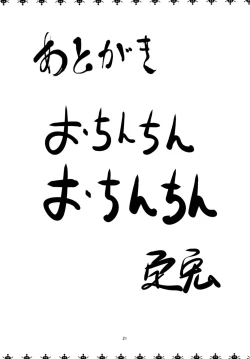 あとがき
お・ちんちん
お・ちんちん
21